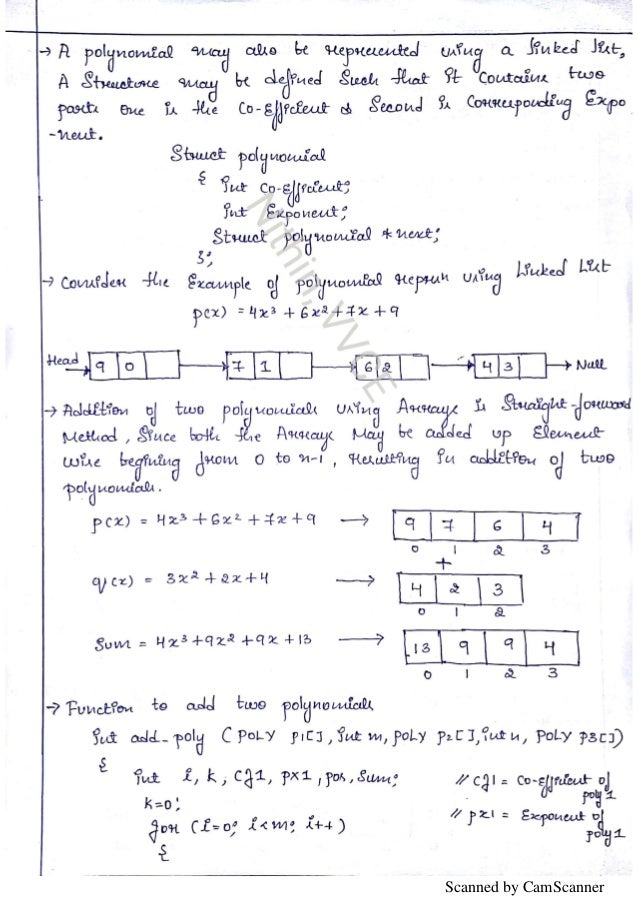 → A polynomial may also be represented using a linked list,
A Structure may be defined Such that it Contains two
parts one is the Co-Efficient & Second is Corresponding Expo
-nent.
Struct polynomial
{ int Co-Efficient;
int Exponent;
Struct polynomial *next;
};
→ Consider the Example of polynomial reprsn using Linked List
p(x) = 4x³ + 6x² + 7x + 9
Head 9 0 → 7 1 → 6 2 → 4 3 → Null
→ Addition of two polynomials using Arrays is Straight-forward
Method, Since both the Arrays May be added up Element
wise begining from 0 to n-1, resulting in addition of two
polynomials.
p(x) = 4x³ + 6x² + 7x + 9 → 9 7 6 4
0 1 2 3
+
q(x) = 3x² + 2x + 4 → 4 2 3
0 1 2
Sum = 4x³ + 9x² + 9x + 13 → 13 9 9 4
0 1 2 3
→ Function to add two polynomials
int add-poly (POLY p1[], int m, POLY p2[], int n, POLY p3[])
{
int i, k, cf1, px1, pos, sum; // cf1 = Co-efficient of poly1
k=0; // px1 = Exponent of poly1
for (i=0; i<m; i++)
{
Nithin, VVCE
Scanned by CamScanner